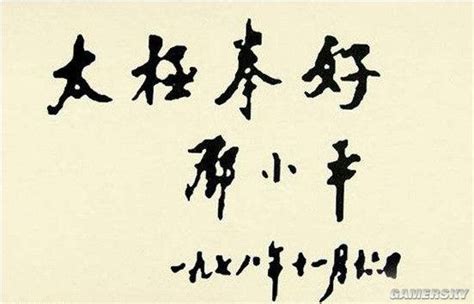 太极拳好
邓小平
一九七八年十一月十六日
GAMERSKY